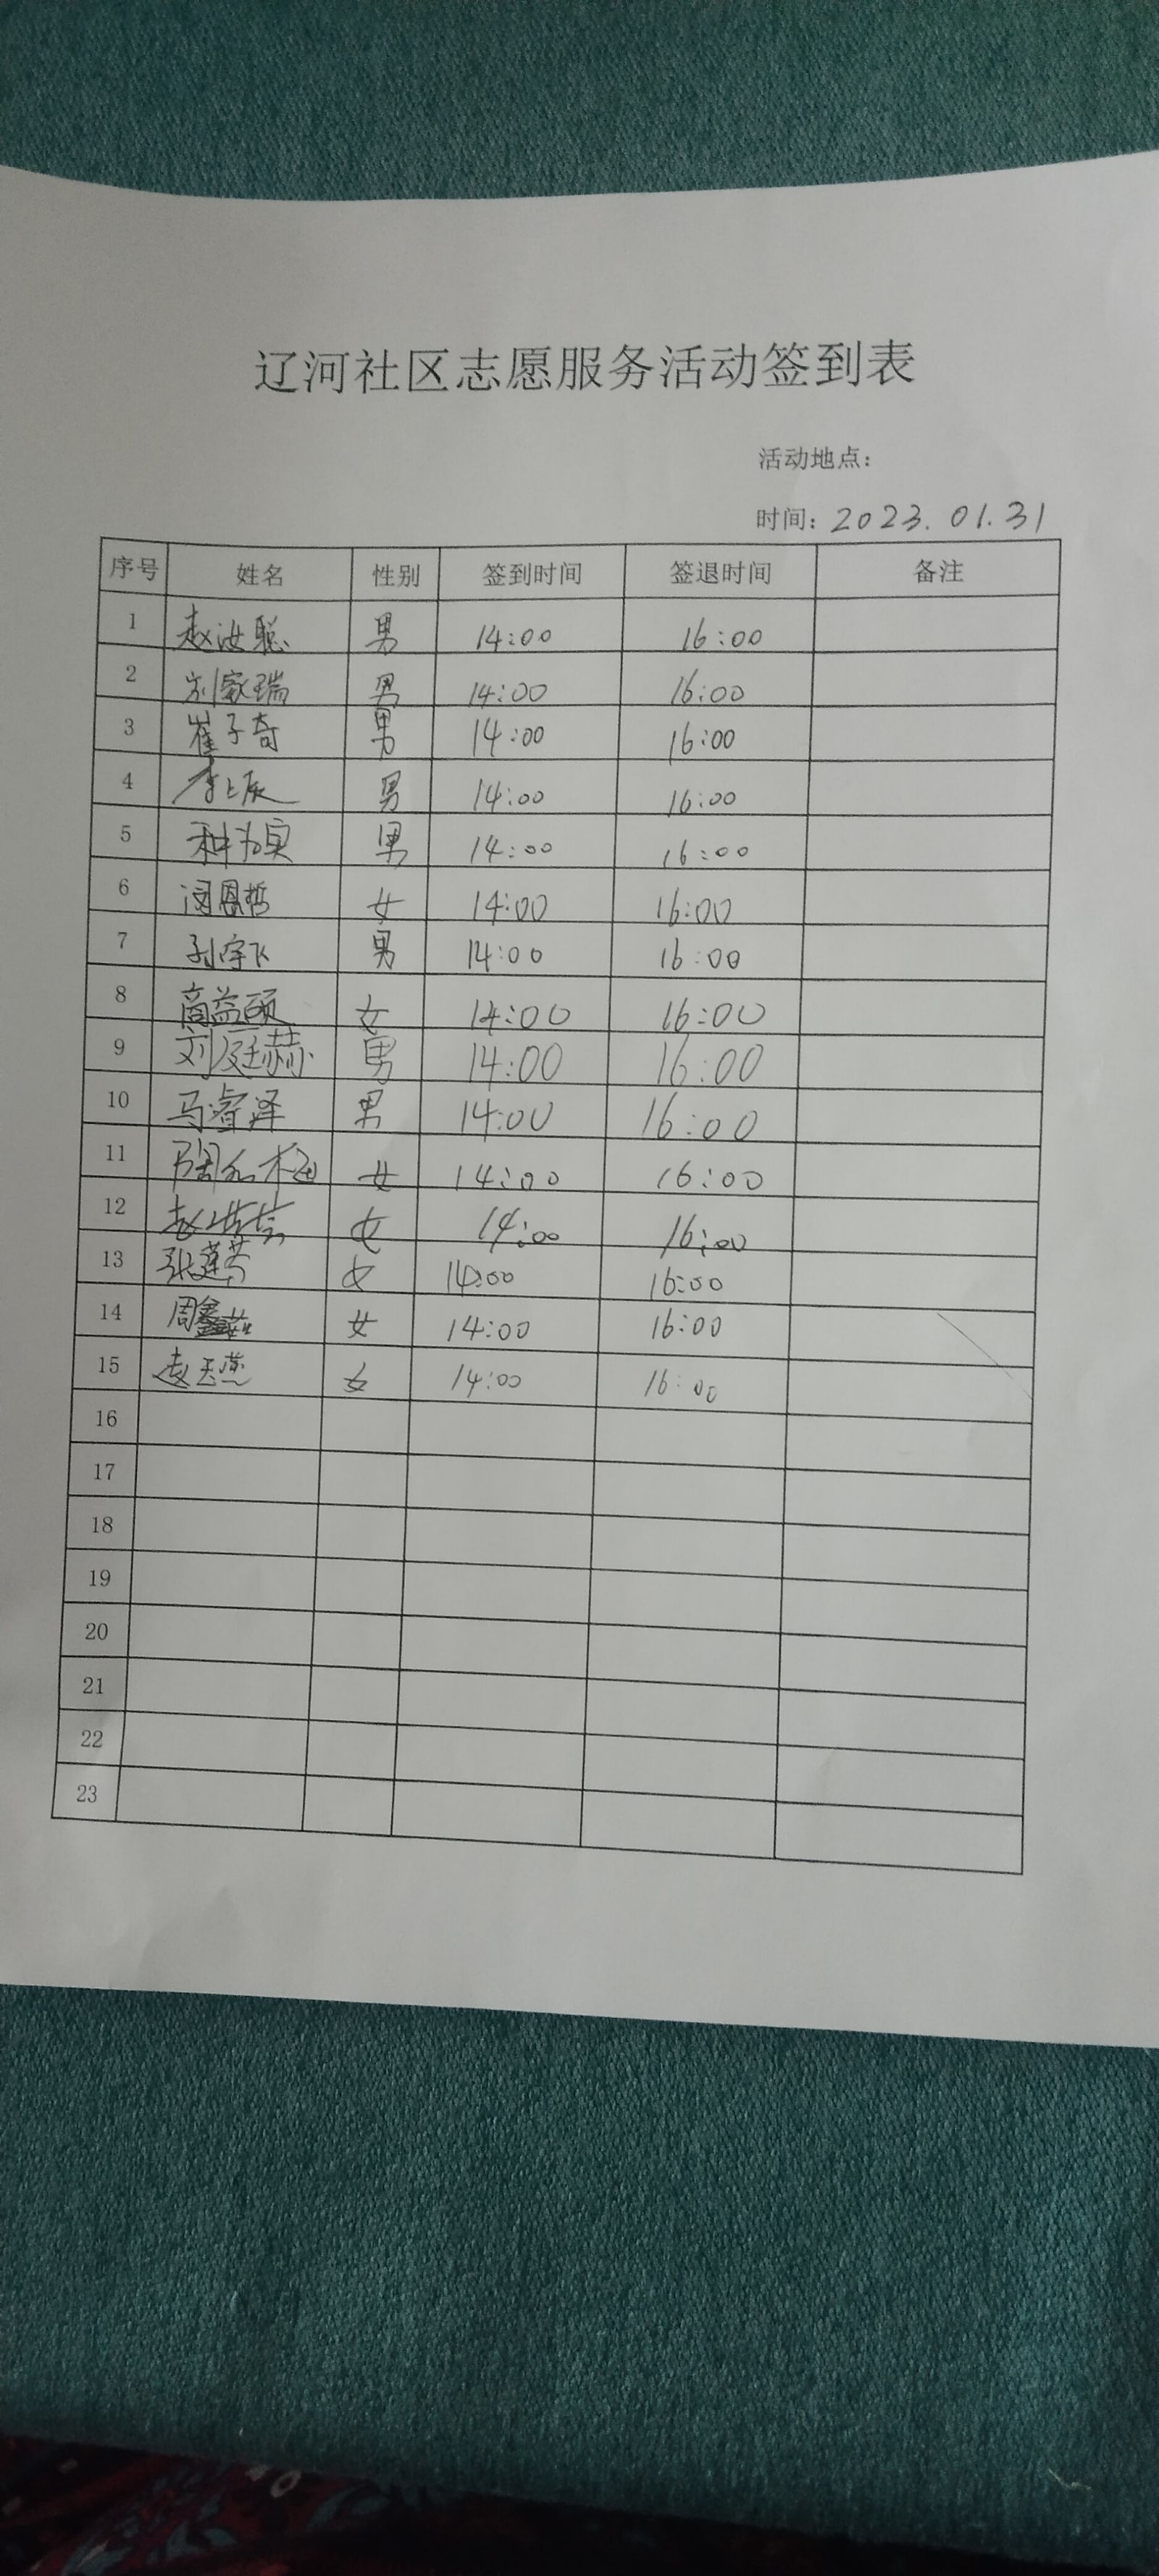 辽河社区志愿服务活动签到表
活动地点:
时间: 2023.01.31
序号 姓名 性别 签到时间 签退时间 备注
1 赵洪聪 男 14:00 16:00
2 刘家瑞 男 14:00 16:00
3 崔子奇 男 14:00 16:00
4 李上辰 男 14:00 16:00
5 男 14:00 16:00
6 闵恩哲 女 14:00 16:00
7 孙宇飞 男 14:00 16:00
8 高益颐 女 14:00 16:00
9 刘庭赫 男 14:00 16:00
10 马睿泽 男 14:00 16:00
11 女 14:00 16:00
12 女 14:00 16:00
13 女 14:00 16:00
14 周鑫 女 14:00 16:00
15 赵玉燕 女 14:00 16:00
16
17
18
19
20
21
22
23